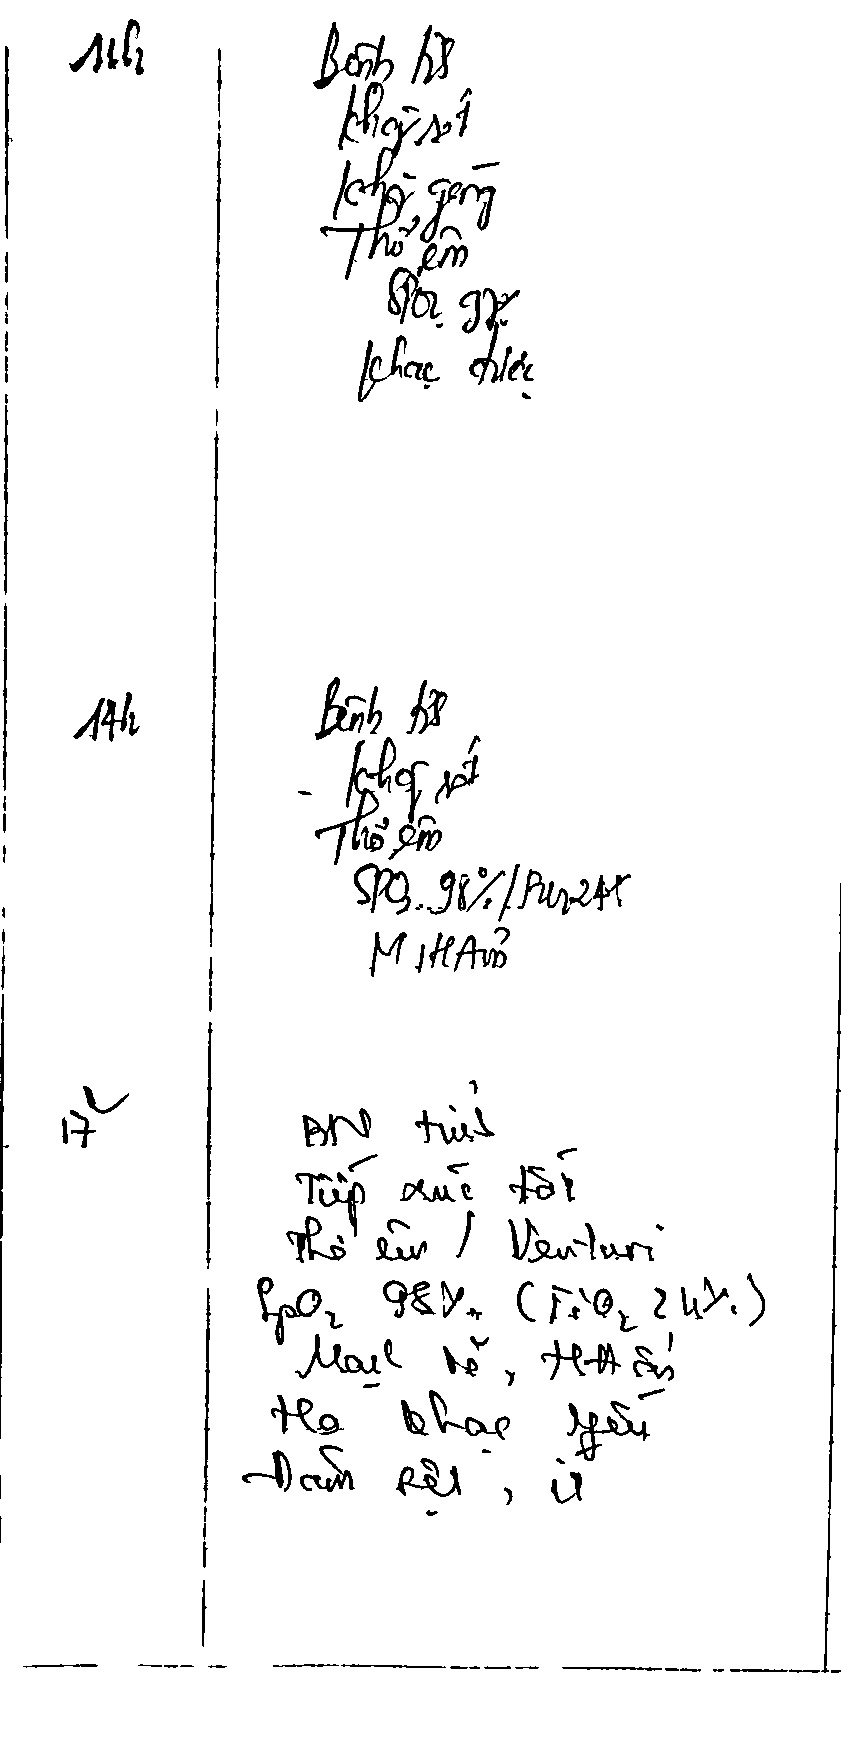 11h
Bệnh tỉnh
Không sốt
Không gắng
Thở êm
SpO2 97%
khạc được
14h
Bệnh tỉnh
- Không sốt
Thở êm
SPO2 98% / FiO2 24%
M, HA ổn
17h
BN tỉnh
Tiếp xúc tốt
Thở êm / Venturi
SpO2 98% (FiO2 24%)
Mạch rõ, HA ổn
Ho khạc yếu
Đàm sệt, ít